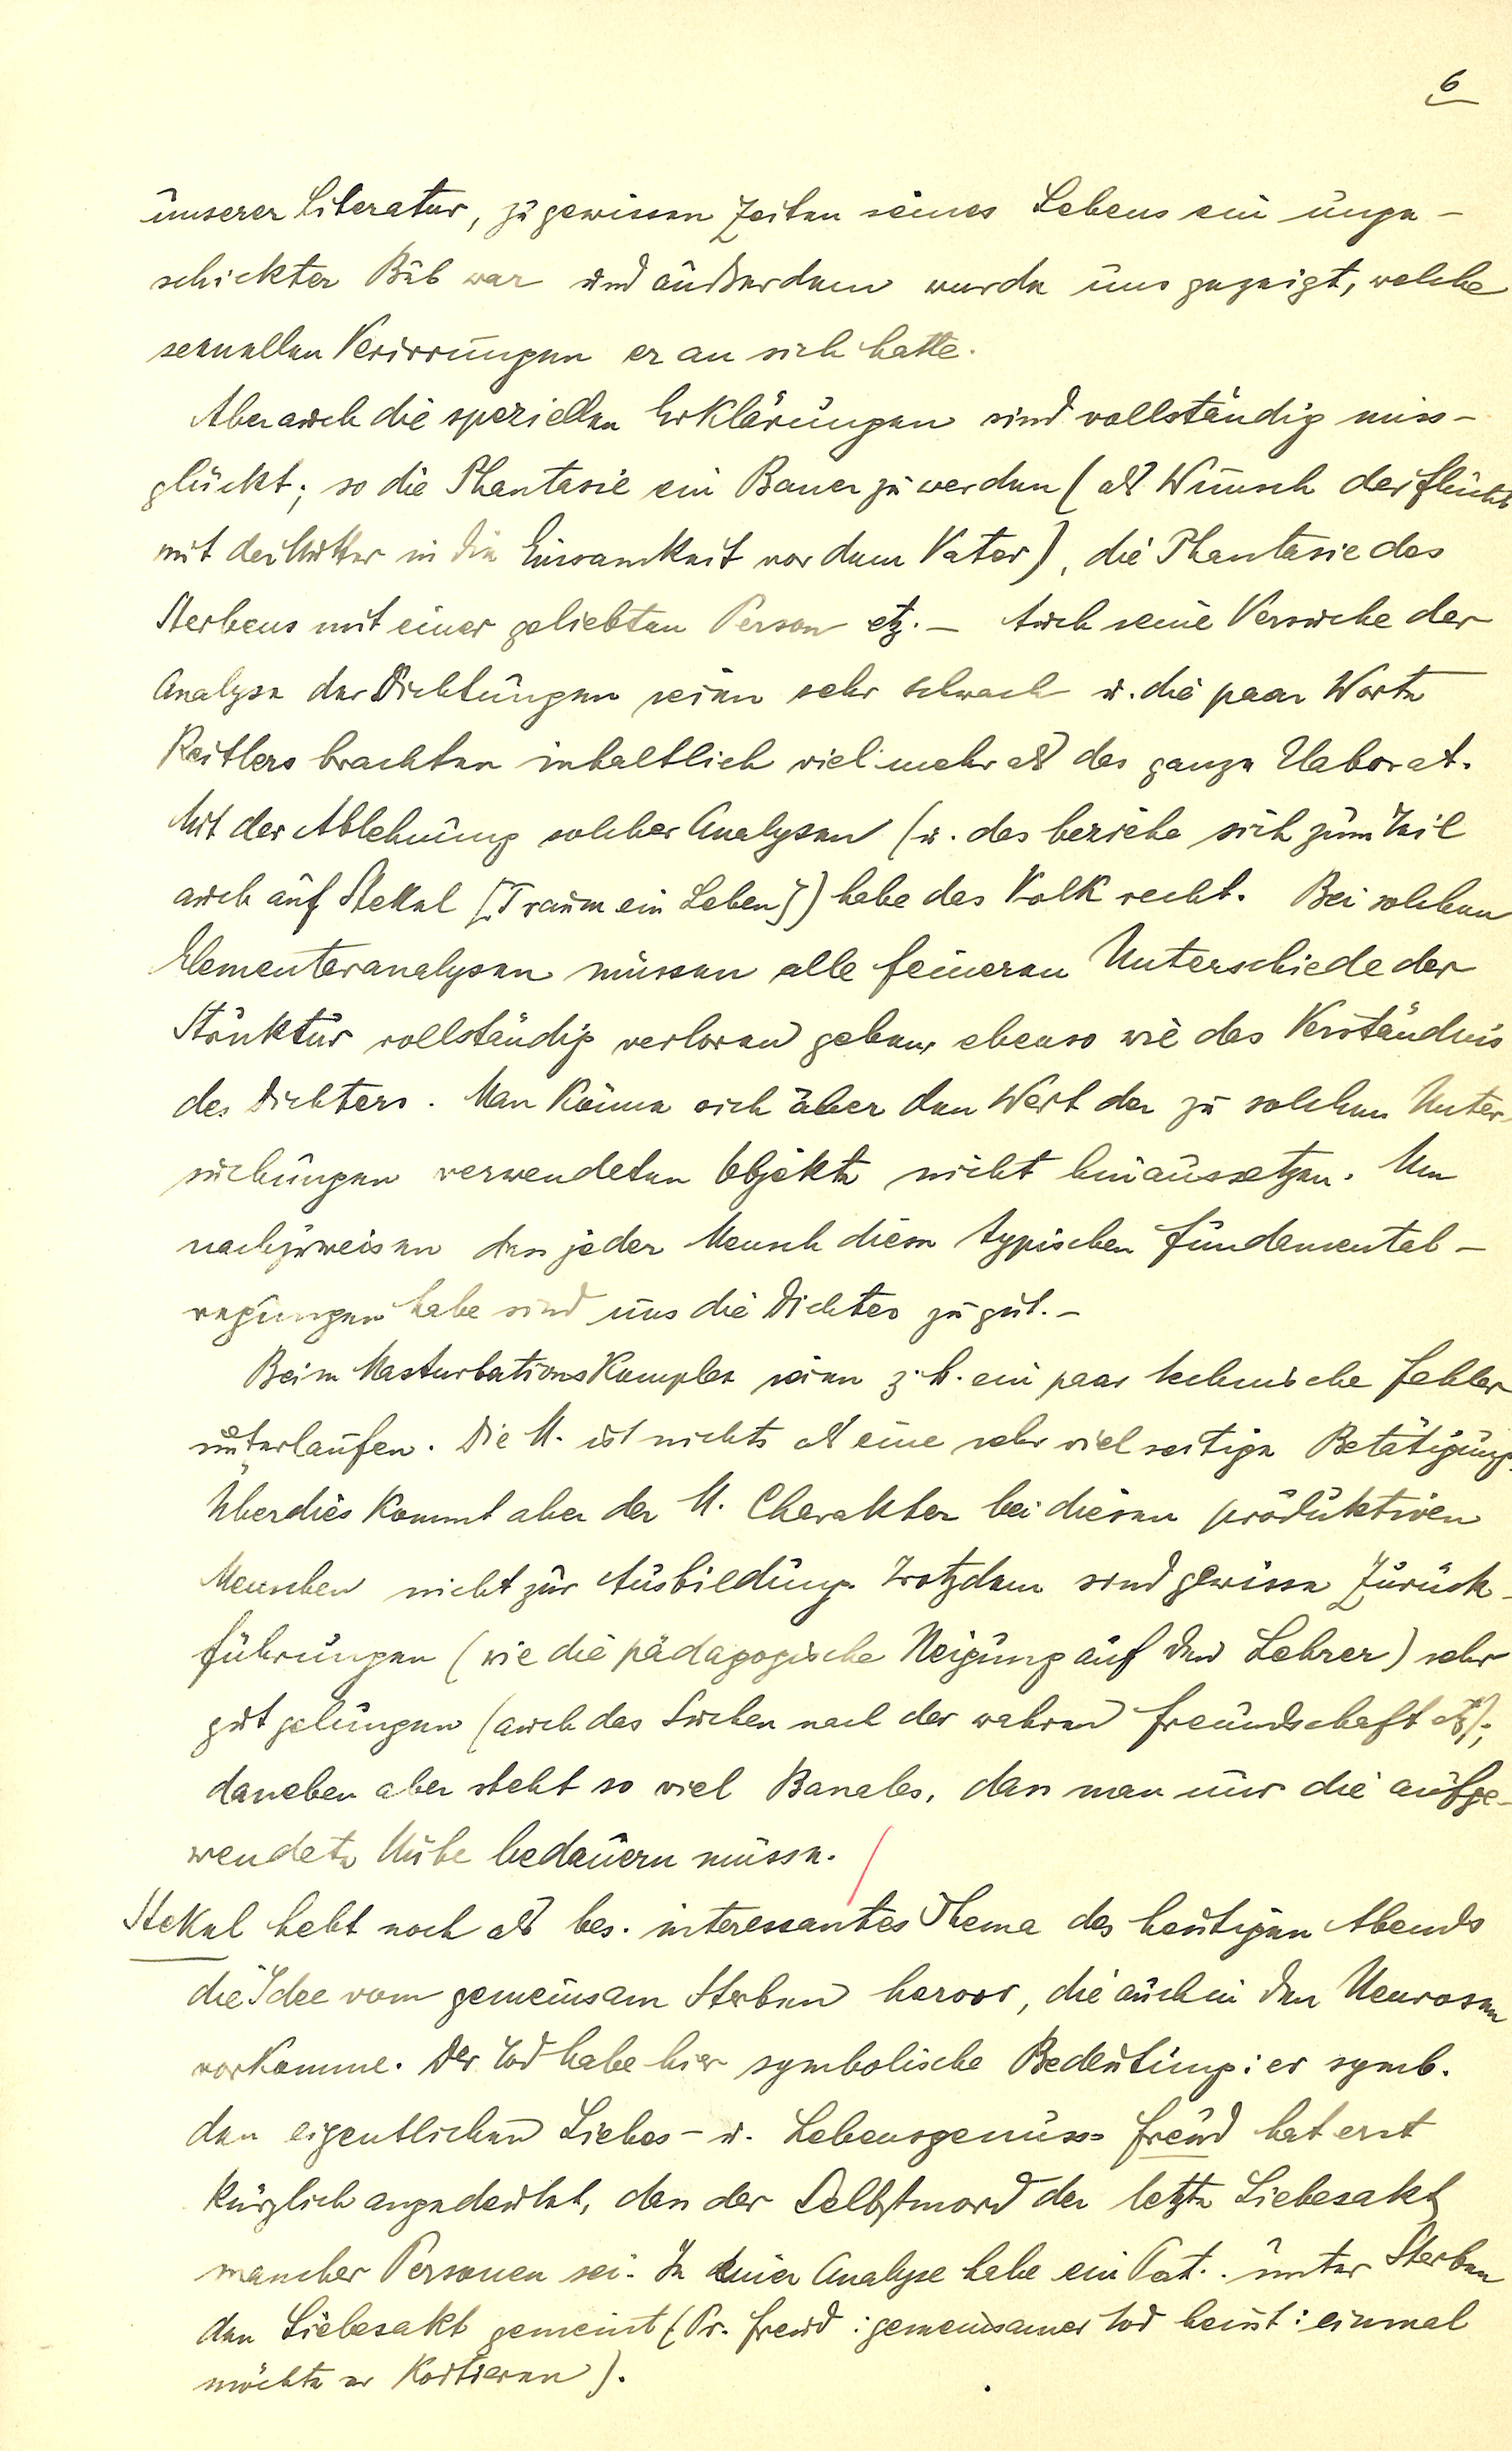 6
unserer Literatur, zu gewissen Zeiten seines Lebens ein unge-
schickter Bub war und außerdem wurde uns gezeigt, welche
sexuellen Verirrungen er an sich hatte.
Aber auch die speziellen Erklärungen sind vollständig miss-
glückt; so die Phantasie ein Bauer zu werden (als Wunsch der Flucht
mit der Mutter in die Einsamkeit vor dem Vater), die Phantasie des
Sterbens mit einer geliebten Person etz. – Auch seine Versuche der
Analyse der Dichtungen seien sehr schwach u. die paar Worte
Reitlers brachten inhaltlich viel mehr als das ganze Elaborat.
Mit der Ablehnung solcher Analysen (u. das beziehe sich zum Teil
auch auf Stekel [Traum ein Leben]) habe das Volk recht. Bei solchen
Elementaranalysen müssen alle feineren Unterschiede der
Struktur vollständig verloren gehen, ebenso wie das Verständnis
des Dichters. Man könne sich über den Wert der zu solchen Unter-
suchungen verwendeten Objekte nicht hinaussetzen. Um
nachzuweisen dass jeder Mensch diese typischen Fundamental-
regungen habe sind uns die Dichter zu gut. –
Beim Masturbationskomplex seien z. B. ein paar technische Fehler
unterlaufen. Die M. ist nichts als eine sehr vielseitige Betätigung.
Überdies kommt aber der M. Charakter bei diesen produktiven
Menschen nicht zur Ausbildung. Trotzdem sind gewisse Zurück-
führungen (wie die pädagogische Neigung auf den Lehrer) sehr
gut gelungen (auch das Suchen nach der wahren Freundschaft etz);
daneben aber steht so viel Banales, dass man nur die aufge-
wendete Mühe bedauern müsse.
Stekel hebt noch als bes. interessantes Thema des heutigen Abends
die Idee vom gemeinsam Sterben hervor, die auch in den Neurosen
vorkomme. Der Tod habe hier symbolische Bedeutung: er symb.
den eigentlichen Liebes- u. Lebensgenuss. Freud hat erst
kürzlich angedeutet, dass der Selbstmord der letzte Liebesakt
mancher Personen sei. In einer Analyse habe ein Pat. unter Sterben
den Liebesakt gemeint (Pr. Freud: gemeinsamer Tod heisst: einmal
möchte er koitieren).